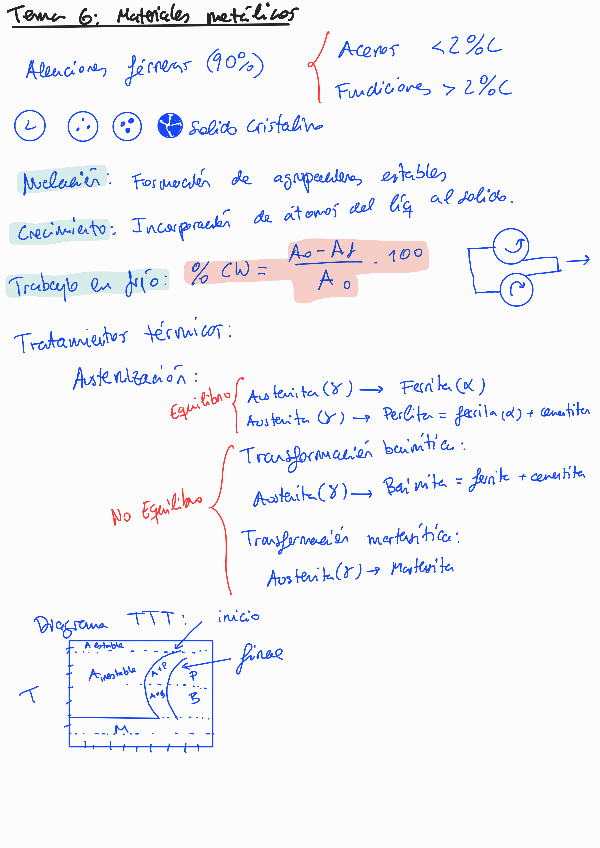 Tema 6: Materiales metálicos
Aleaciones férreas (90%)
Aceros <2%C
Fundiciones >2%C
L
Solido cristalino
Nucleación: Formación de agrupaciones estables
Crecimiento: Incorporación de átomos del líq al solido.
Trabajo en frío: % CW = (A₀ - Af) / A₀ · 100
Tratamientos térmicos:
Austenización:
Equilibrio
Austenita (γ) → Ferrita (α)
Austenita (γ) → Perlita = ferrita (α) + cementita
No Equilibrio
Transformación bainítica:
Austenita (γ) → Bainita = ferrita + cementita
Transformación martensítica:
Austenita (γ) → Martensita
Diagrama TTT: inicio
final
T
A estable
A inestable
A+P
P
A+B
B
M